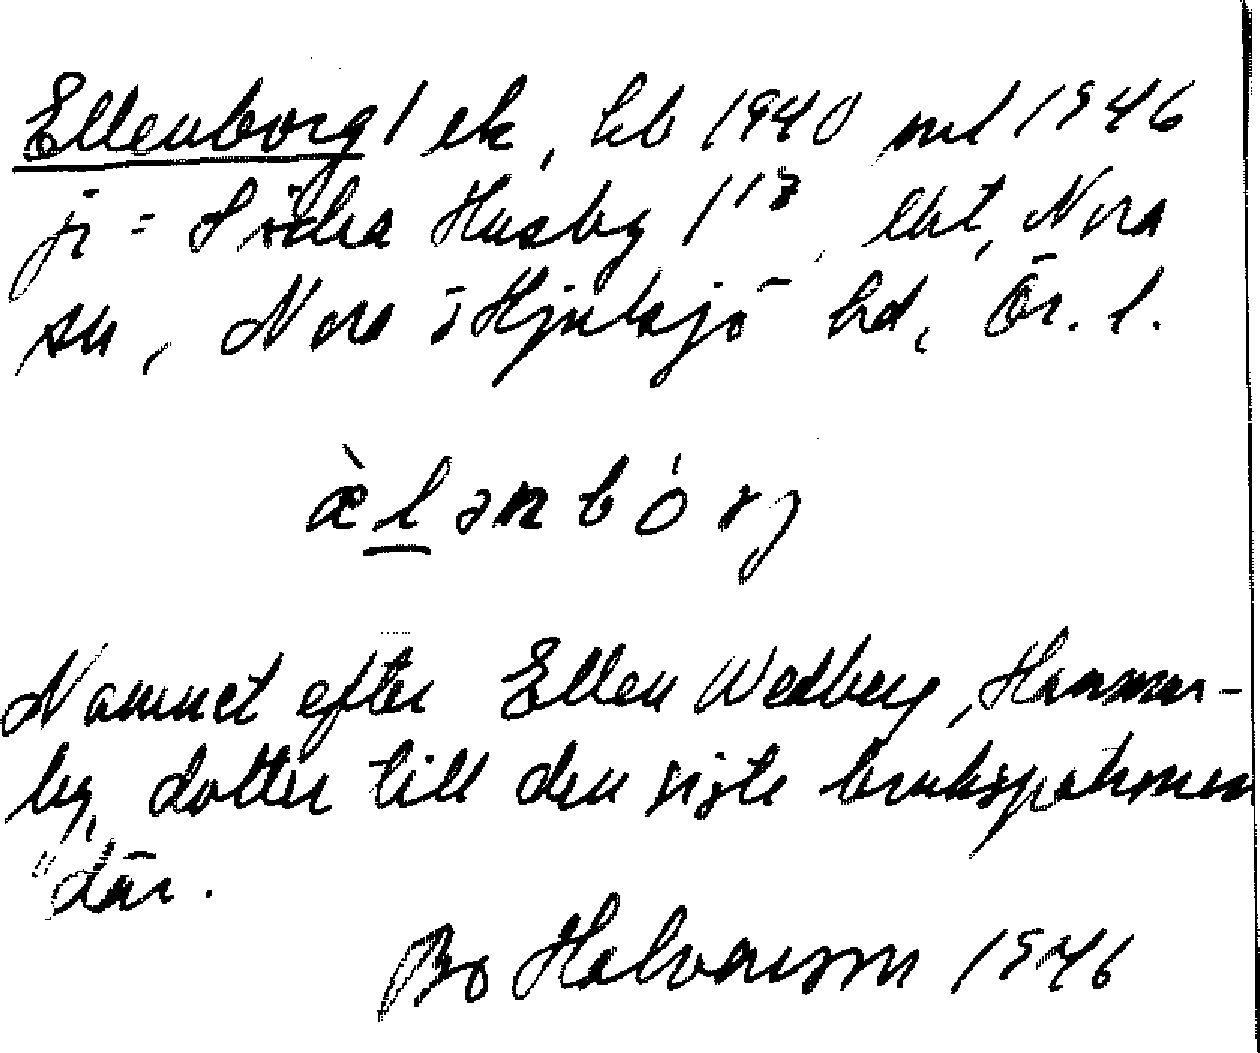 Ellenborg / ek, hb 1940 ml 1946
ji = Södra Husby 1¹³, lht, Nora
sn, Nora o Hjulsjö hd, Ör. l.
ὰ̀lənbórj
Namnet efter Ellen Wedberg, Hammar-
by, dotter till den siste brukspatronen
där.
Bo Halvarsson 1946